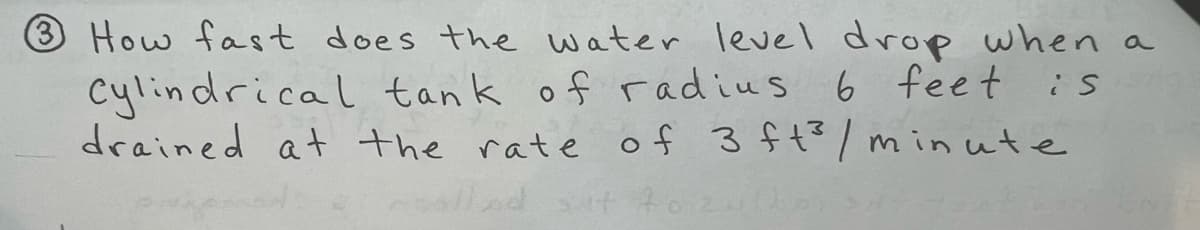 ③ How fast does the water level drop when a
cylindrical tank of radius 6 feet is
drained at the rate of 3 ft³/minute